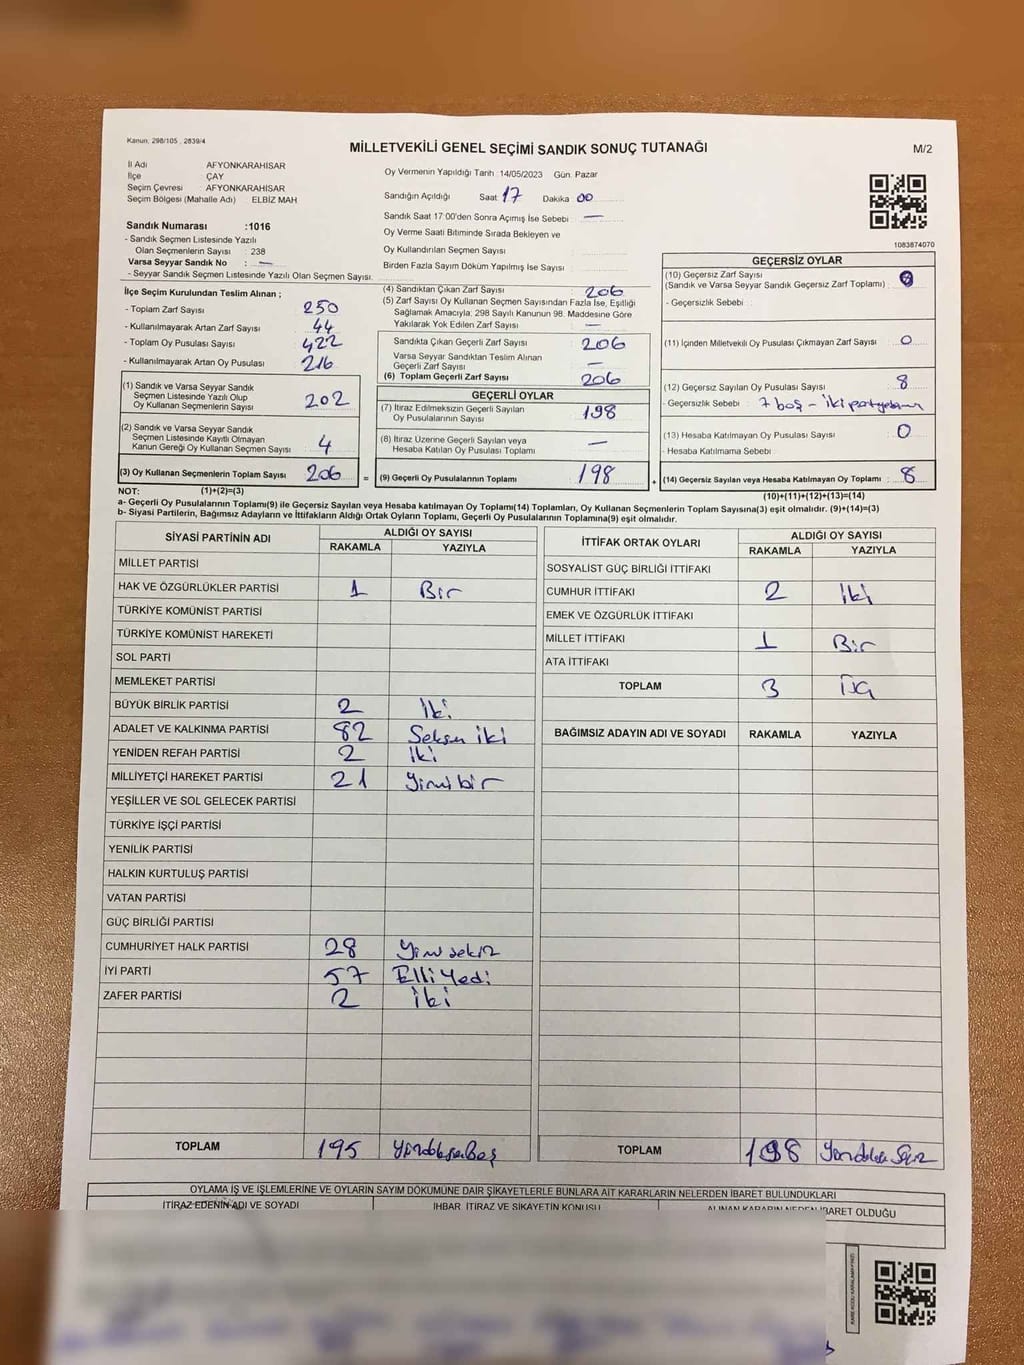 Kanun. 298/105 , 2839/4
MİLLETVEKİLİ GENEL SEÇİMİ SANDIK SONUÇ TUTANAĞI
M/2
İl Adı AFYONKARAHİSAR
İlçe ÇAY
Seçim Çevresi AFYONKARAHİSAR
Seçim Bölgesi (Mahalle Adı) ELBİZ MAH
Sandık Numarası :1016
- Sandık Seçmen Listesinde Yazılı
Olan Seçmenlerin Sayısı : 238
Varsa Seyyar Sandık No : —
- Seyyar Sandık Seçmen Listesinde Yazılı Olan Seçmen Sayısı.
Oy Vermenin Yapıldığı Tarih :14/05/2023 Gün. Pazar
Sandığın Açıldığı Saat 17 Dakika 00
Sandık Saat 17:00'den Sonra Açımış İse Sebebi : —
Oy Verme Saati Bitiminde Sırada Bekleyen ve
Oy Kullandırılan Seçmen Sayısı
Birden Fazla Sayım Döküm Yapılmış İse Sayısı :
1083874070
İlçe Seçim Kurulundan Teslim Alınan ;
- Toplam Zarf Sayısı 250
- Kullanılmayarak Artan Zarf Sayısı 44
- Toplam Oy Pusulası Sayısı 422
- Kullanılmayarak Artan Oy Pusulası 216
(1) Sandık ve Varsa Seyyar Sandık
Seçmen Listesinde Yazılı Olup
Oy Kullanan Seçmenlerin Sayısı 202
(2) Sandık ve Varsa Seyyar Sandık
Seçmen Listesinde Kayıtlı Olmayan
Kanun Gereği Oy Kullanan Seçmen Sayısı 4
(3) Oy Kullanan Seçmenlerin Toplam Sayısı 206
(4) Sandıktan Çıkan Zarf Sayısı : 206
(5) Zarf Sayısı Oy Kullanan Seçmen Sayısından Fazla İse, Eşitliği
Sağlamak Amacıyla; 298 Sayılı Kanunun 98. Maddesine Göre
Yakılarak Yok Edilen Zarf Sayısı : —
Sandıkta Çıkan Geçerli Zarf Sayısı : 206
Varsa Seyyar Sandıktan Teslim Alınan
Geçerli Zarf Sayısı : —
(6) Toplam Geçerli Zarf Sayısı : 206
GEÇERLİ OYLAR
(7) İtiraz Edilmeksizin Geçerli Sayılan
Oy Pusulalarının Sayısı : 198
(8) İtiraz Üzerine Geçerli Sayılan veya
Hesaba Katılan Oy Pusulası Toplamı : —
= (9) Geçerli Oy Pusulalarının Toplamı : 198
GEÇERSİZ OYLAR
(10) Geçersiz Zarf Sayısı
(Sandık ve Varsa Seyyar Sandık Geçersiz Zarf Toplamı) :
- Geçersizlik Sebebi :
(11) İçinden Milletvekili Oy Pusulası Çıkmayan Zarf Sayısı : 0
(12) Geçersiz Sayılan Oy Pusulası Sayısı : 8
- Geçersizlik Sebebi : 7 boş – iki partiye
(13) Hesaba Katılmayan Oy Pusulası Sayısı : 0
- Hesaba Katılmama Sebebi :
+ (14) Geçersiz Sayılan veya Hesaba Katılmayan Oy Toplamı : 8
NOT: (1)+(2)=(3)
(10)+(11)+(12)+(13)=(14)
a- Geçerli Oy Pusulalarının Toplamı(9) ile Geçersiz Sayılan veya Hesaba katılmayan Oy Toplamı(14) Toplamları, Oy Kullanan Seçmenlerin Toplam Sayısına(3) eşit olmalıdır. (9)+(14)=(3)
b- Siyasi Partilerin, Bağımsız Adayların ve İttifakların Aldığı Ortak Oyların Toplamı, Geçerli Oy Pusulalarının Toplamına(9) eşit olmalıdır.
SİYASİ PARTİNİN ADI ALDIĞI OY SAYISI
RAKAMLA YAZIYLA
MİLLET PARTİSİ
HAK VE ÖZGÜRLÜKLER PARTİSİ 1 Bir
TÜRKİYE KOMÜNİST PARTİSİ
TÜRKİYE KOMÜNİST HAREKETİ
SOL PARTİ
MEMLEKET PARTİSİ
BÜYÜK BİRLİK PARTİSİ 2 İki
ADALET VE KALKINMA PARTİSİ 82 Seksen iki
YENİDEN REFAH PARTİSİ 2 İki
MİLLİYETÇİ HAREKET PARTİSİ 21 Yirmibir
YEŞİLLER VE SOL GELECEK PARTİSİ
TÜRKİYE İŞÇİ PARTİSİ
YENİLİK PARTİSİ
HALKIN KURTULUŞ PARTİSİ
VATAN PARTİSİ
GÜÇ BİRLİĞİ PARTİSİ
CUMHURİYET HALK PARTİSİ 28 Yirmisekiz
İYİ PARTİ 57 Elli Yedi
ZAFER PARTİSİ 2 İki
TOPLAM 195 Yüzdoksanbeş
İTTİFAK ORTAK OYLARI ALDIĞI OY SAYISI
RAKAMLA YAZIYLA
SOSYALİST GÜÇ BİRLİĞİ İTTİFAKI
CUMHUR İTTİFAKI 2 İki
EMEK VE ÖZGÜRLÜK İTTİFAKI
MİLLET İTTİFAKI 1 Bir
ATA İTTİFAKI
TOPLAM 3 Üç
BAĞIMSIZ ADAYIN ADI VE SOYADI RAKAMLA YAZIYLA
TOPLAM 198 Yüzdoksan Sekiz
OYLAMA İŞ VE İŞLEMLERİNE VE OYLARIN SAYIM DÖKÜMÜNE DAİR ŞİKAYETLERLE BUNLARA AİT KARARLARIN NELERDEN İBARET BULUNDUKLARI
İTİRAZ EDENİN ADI VE SOYADI İHBAR, İTİRAZ VE ŞİKAYETİN KONUSU ALINAN KARARIN NEDEN İBARET OLDUĞU